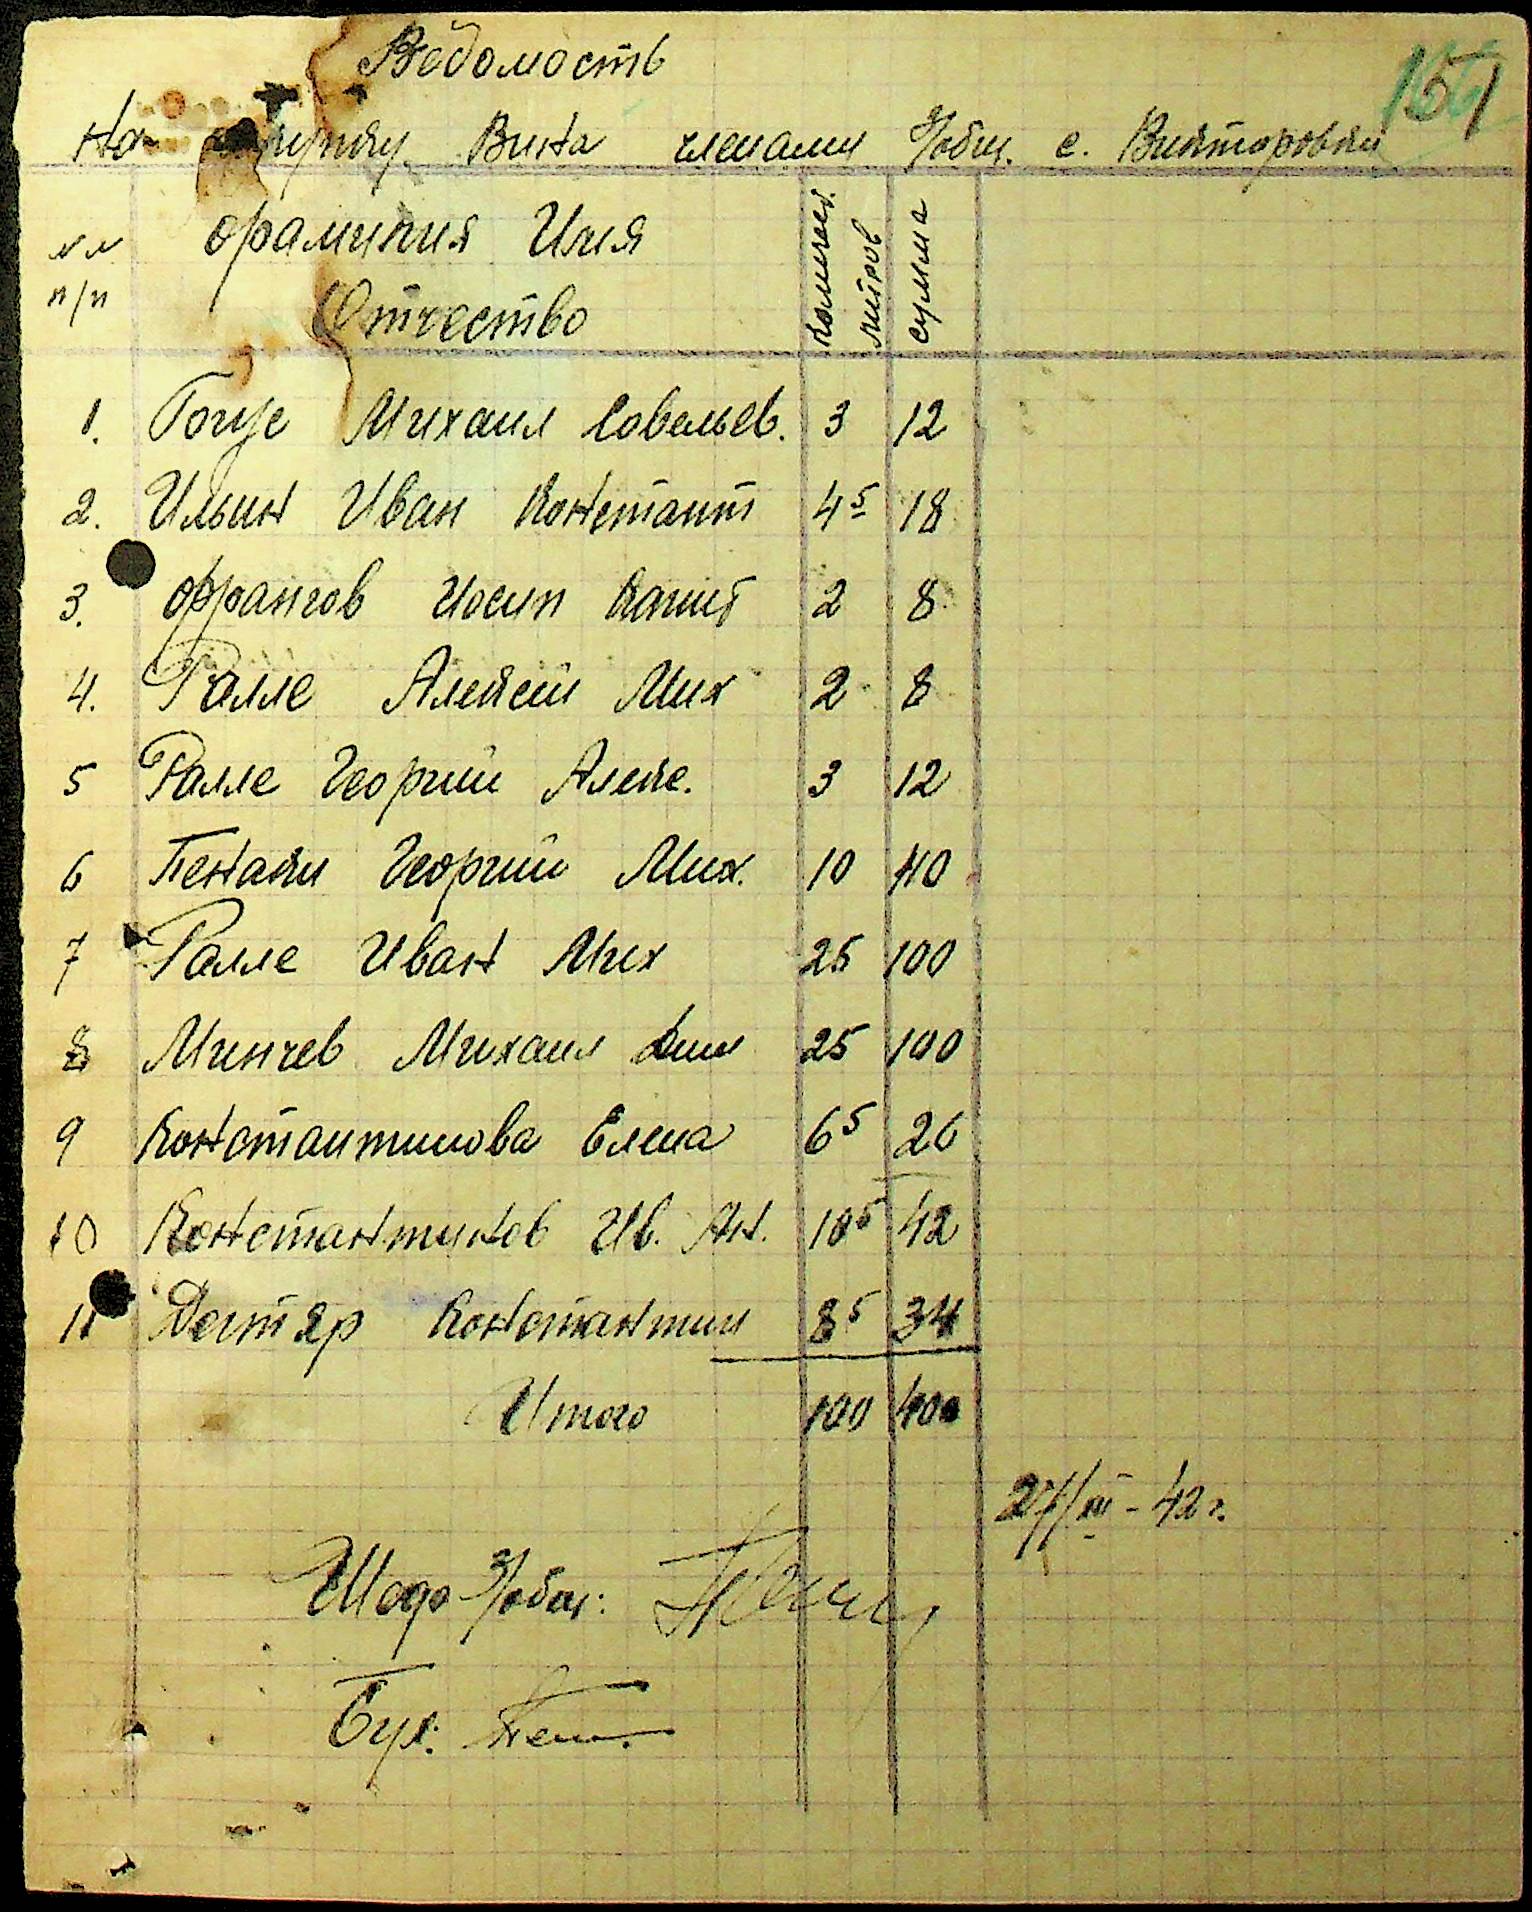 Ведомость
151
На покупку Вина членами Общ. с. Викторовки
№№ Фамилия Имя количест. литров сумма
п/п Отчество
1. Гогуе Михаил Совельев. 3 12
2. Ильин Иван Констант 4⁵ 18
3. Франгов Иосип 2 8
4. Ралле Алексей Мих 2 8
5 Ралле Георгий Алекс. 3 12
6 Пенаки Георгий Мих. 10 40
7 Ралле Иван Мих 25 100
8 Минчев Михаил Дим 25 100
9 Константинова Елена 6⁵ 26
10 Константинов Ив. Ан. 10⁵ 42
11 Дестяр Константин 8⁵ 34
Итого 100 400
27/III - 42 г.
Бух.